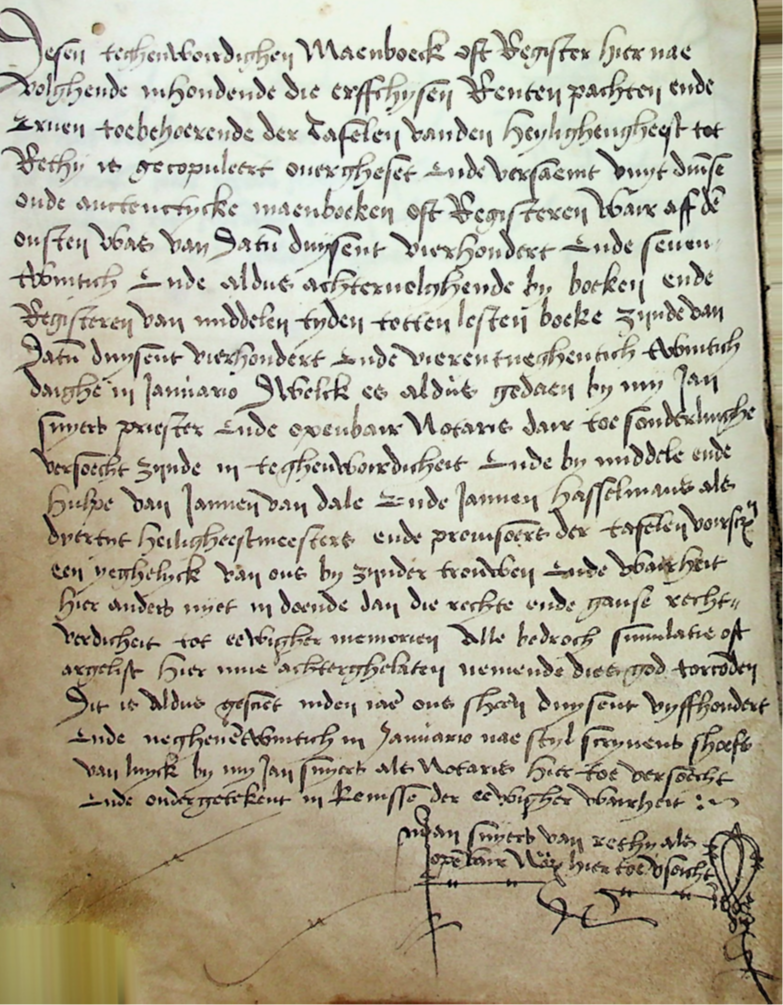 Desen teghenwordighen Maenboeck oft Register hier nae
volghende inhoudende die erffchysen Renten pachten ende
Eruen toebehoerende der Tafelen vanden heylighengheest tot
Rethy is gecopuleert ouergheset Ende versaemt vuyt diuse
oude auctentycke maenboeken oft Registeren wair aff dē
ousten was van Datū duysent vierhondert Ende seuen
twintich Ende aldus achternolghende by boeken ende
Registeren van middelen tyden totten lesten boeke zynde van
Datū duysent vierhondert Ende vierentneghentich twintich
daighe in Januario Dwelck es aldus gedaen by my Jan
suyers priester Ende openbair Notaris dair toe sonderlinghe
versoecht zynde in teghenwordicheit Ende by middele ende
hulpe van Jannen van dale Ende Jannen hasselmans als
heiligheestmeesters ende promisoers der tafelen voirscr
een yeghelyck van ons by zynder trouwen Ende wairheit
hier anders nyet in doende dan die rechte ende gause recht〃
verdicheit tot eewigher memorien Alle bedroch simulatie oft
argelist hier inne achterghelaten nemende dies god torcōden
Dit is aldus gesciet inden iaē ons sheeren duysent vyffhondert
Ende neghenētwintich in Januario nae styl scryuens shoefs
van luyck by my Jan suyers als Notaris hier toe versoecht
Ende ondergetekent in kenisse der eewigher wairheit :~
Jan suyers van rethy als
opēbair hier toe vsoicht